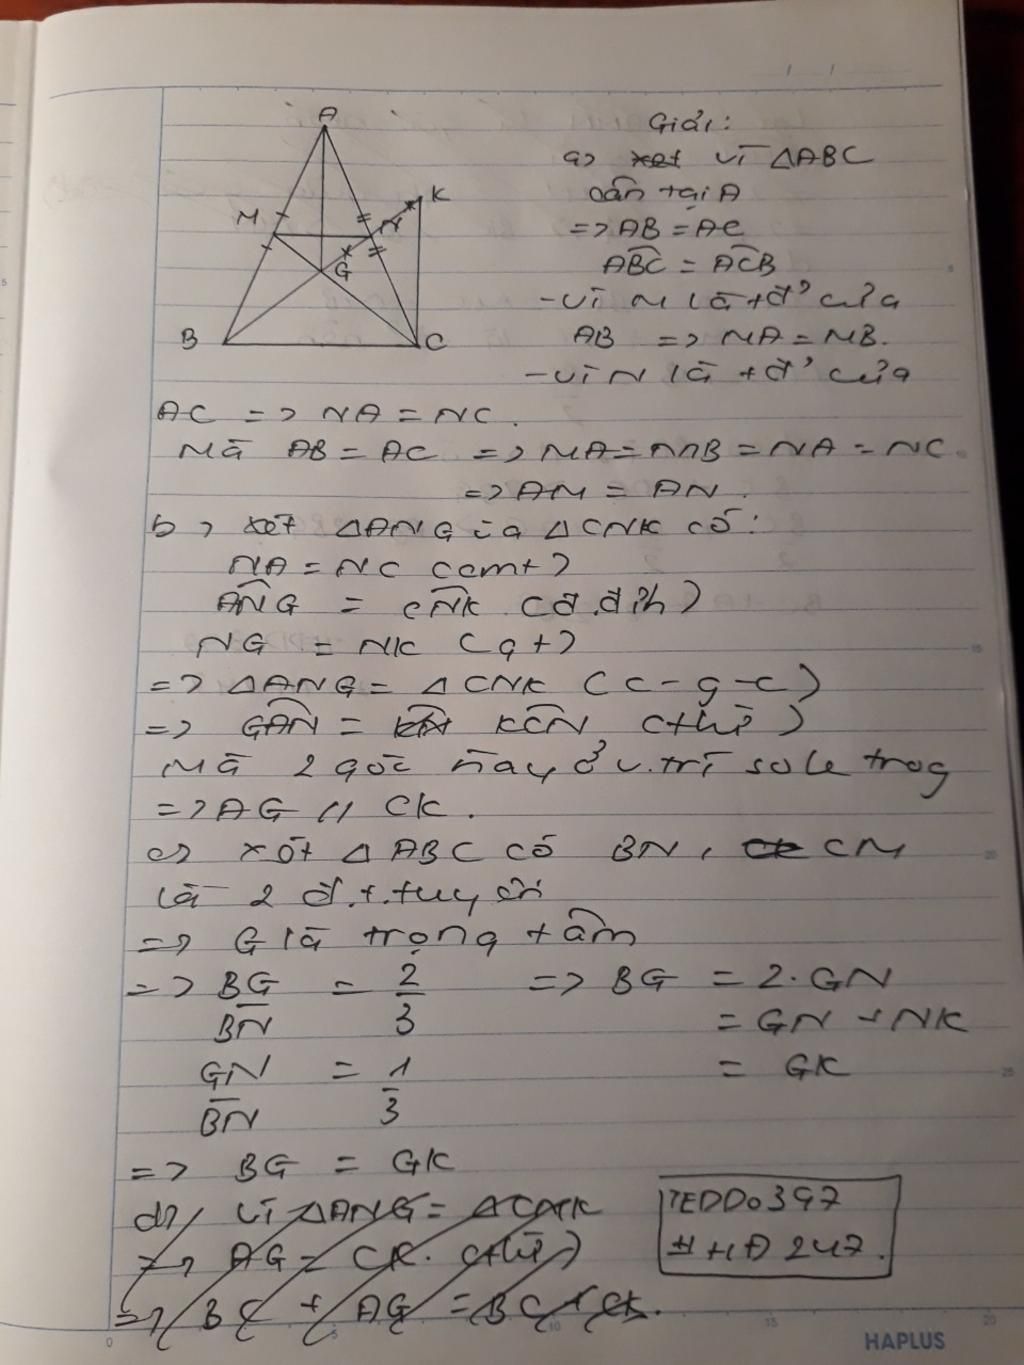 A
K
M
N
G
B
C
Giải:
a) xet vì ΔABC
cân tại A
=> AB = AC
ABC = ACB
- vì M là tđ' của
AB => MA = MB.
- vì N là tđ' của
AC => NA = NC.
Mà AB = AC => MA = MB = NA = NC.
=> AM = AN.
b) xét ΔANG và ΔCNK có:
NA = NC (cmt)
ANG = CNK (đ.đỉh)
NG = NK (gt)
=> ΔANG = ΔCNK (c-g-c)
=> GAN = KCN (thì)
Mà 2 góc này ở v.trí sole trog
=> AG // CK.
c) xét ΔABC có BN, CM
là 2 đ.t.tuyến
=> G là trọng tâm
=> BG/BN = 2/3 => BG = 2.GN
= GN + NK
GN/BN = 1/3 = GK
=> BG = GK
d) vì ΔANG = ΔCNK
=> AG = CK. (thì)
=> BC + AG = BC + CK.
TEDD0397
HHĐ 247.
HAPLUS